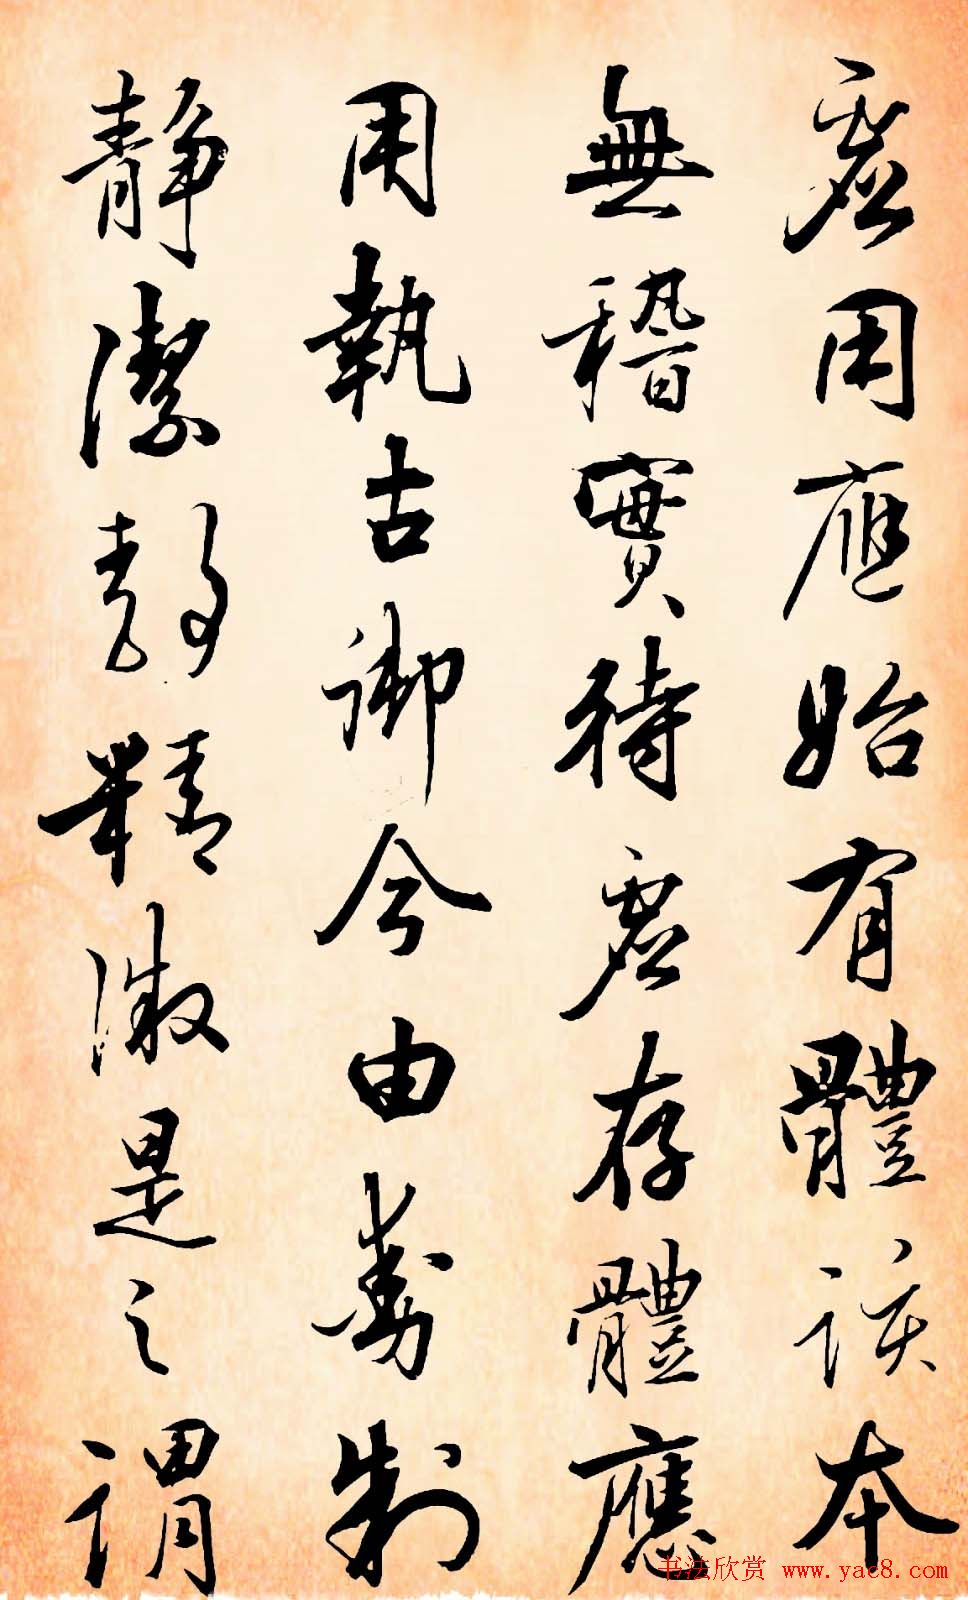 虛用應始有體該本
無稽實待虛存體應
用執古御今由動制
静潔静精微是之謂
书法欣赏 www.yac8.com